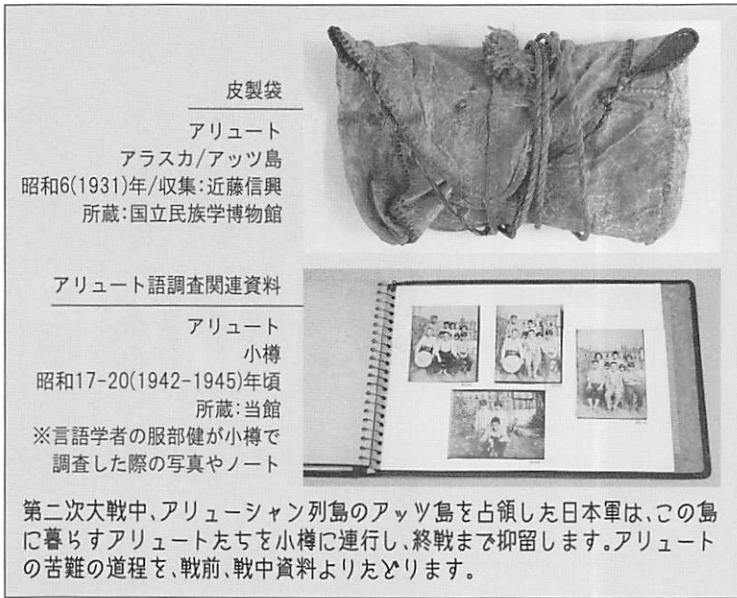 皮製袋
アリュート
アラスカ/アッツ島
昭和6(1931)年/収集:近藤信興
所蔵:国立民族学博物館
アリュート語調査関連資料
アリュート
小樽
昭和17-20(1942-1945)年頃
所蔵:当館
※言語学者の服部健が小樽で
調査した際の写真やノート
第二次大戦中、アリューシャン列島のアッツ島を占領した日本軍は、この島
に暮らすアリュートたちを小樽に連行し、終戦まで抑留します。アリュート
の苦難の道程を、戦前、戦中資料よりたどります。